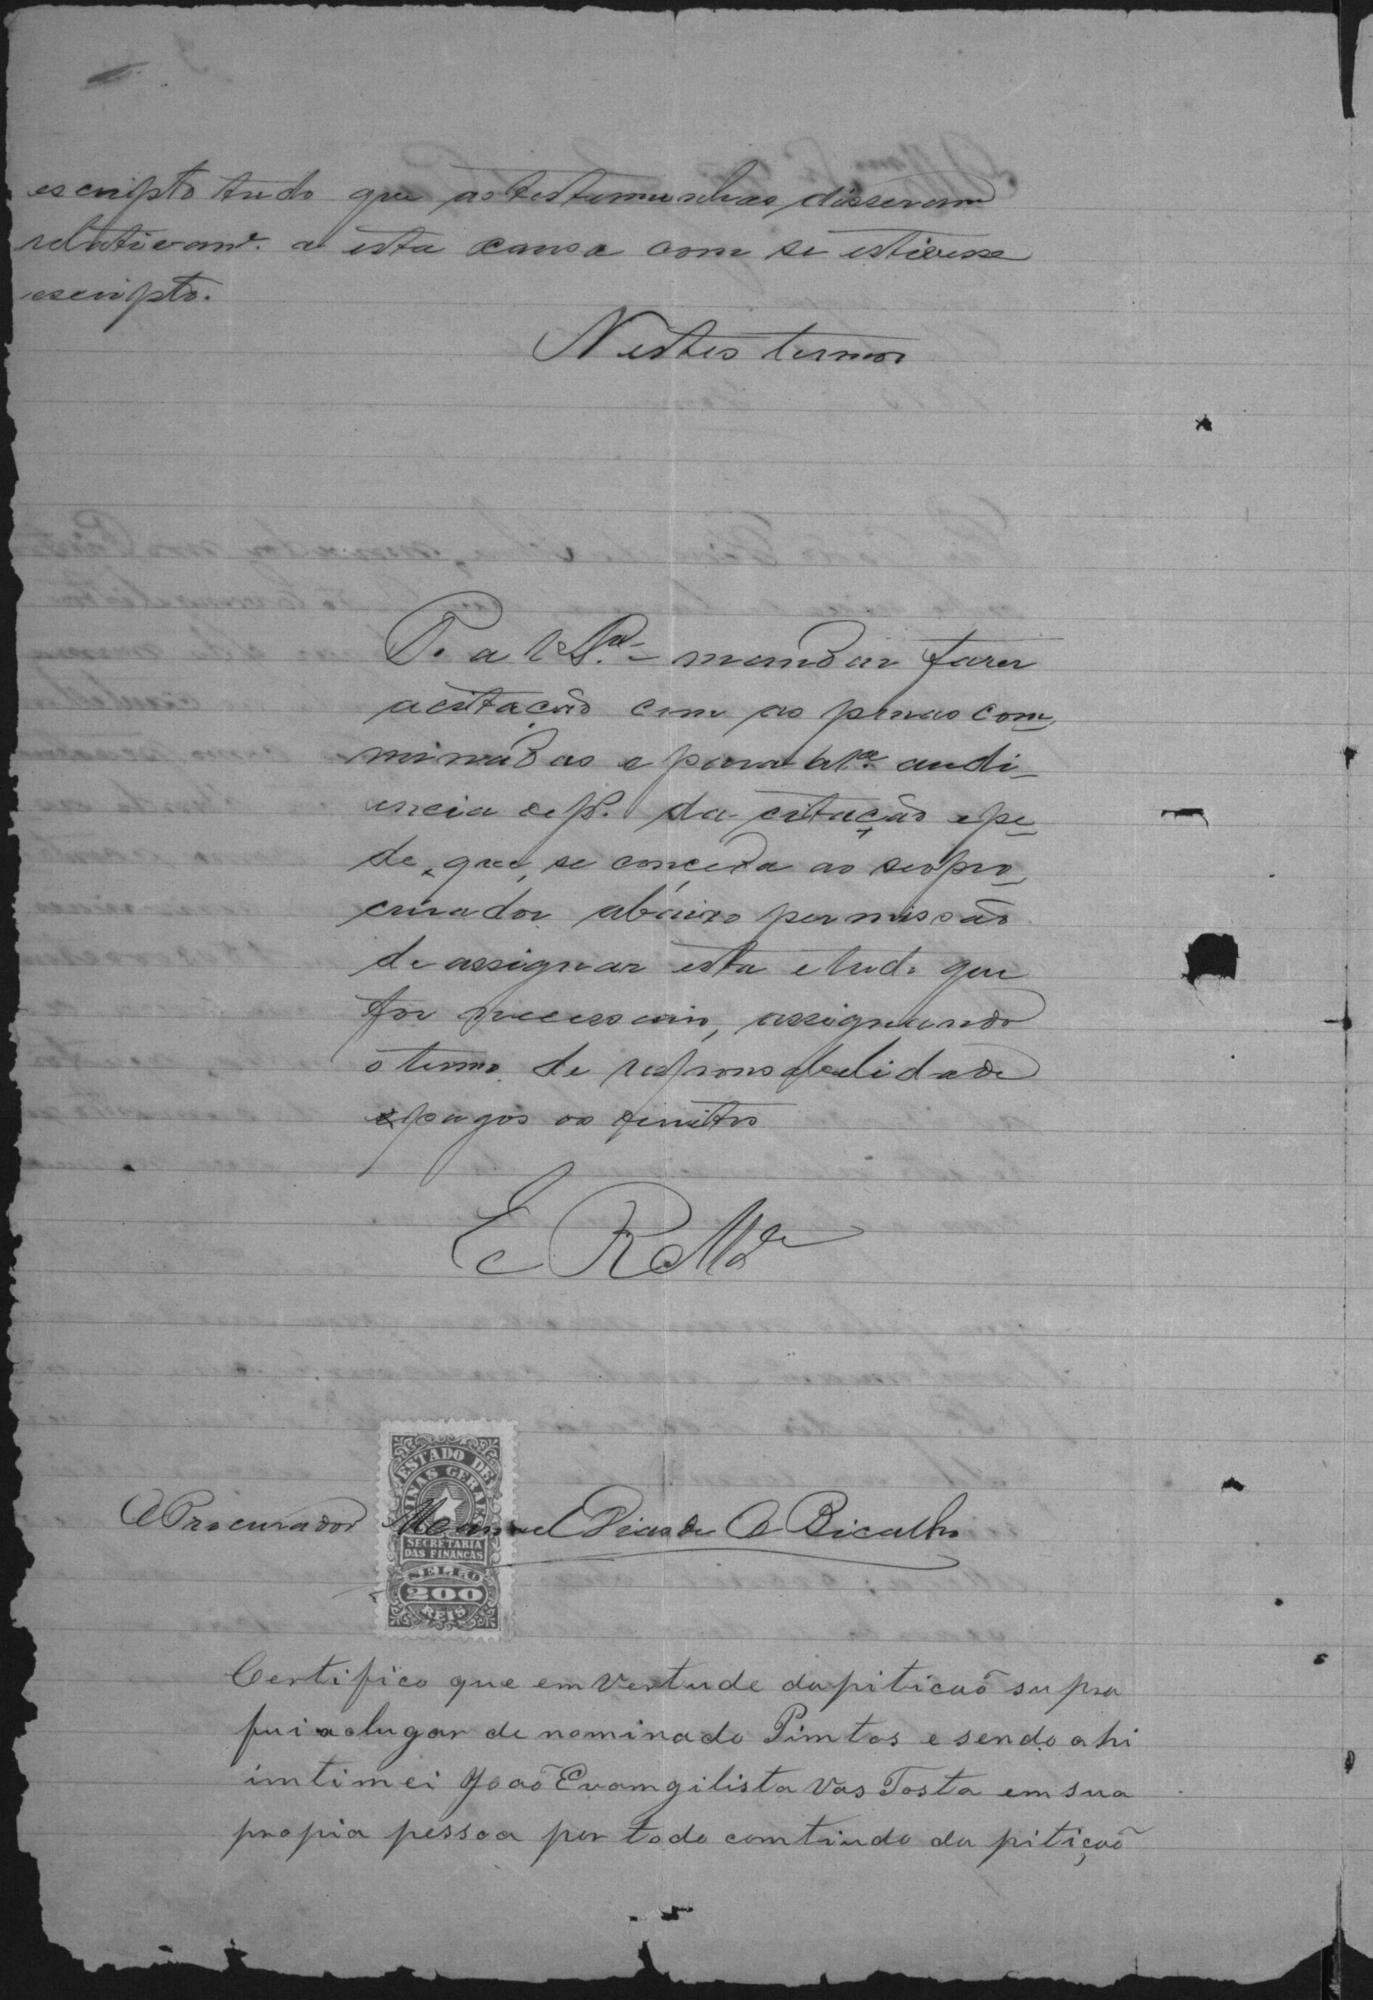 escripto tudo que as testemunhas disseram
relativam.e a esta causa com se estivesse
escripto.
Nestes termos
P. a V S.ª mandar fazer
a citação com as penas com
minadas e para a 1ª audi-
encia dep. da citação e pe-
de, que, se conceda ao seo pro-
curador abaixo permissão
de assignar esta e tudo que
for necessario, assignando
o termo de responsabelidade
e pagos os direitos
E R M.ce
ESTADO DE
MINAS GERAES
SECRETARIA
DAS FINANÇAS
SELLO
200
REIS
O Procurador Manoel Dias de O Bicalho
Certifico que em vertude da piticaõ supra
fui ao lugar de nominado Pimtos e sendo ahi
imtimei Joaõ Evamgilista Vas Tosta em sua
propia pessoa por todo comtiudo da pitiçaõ